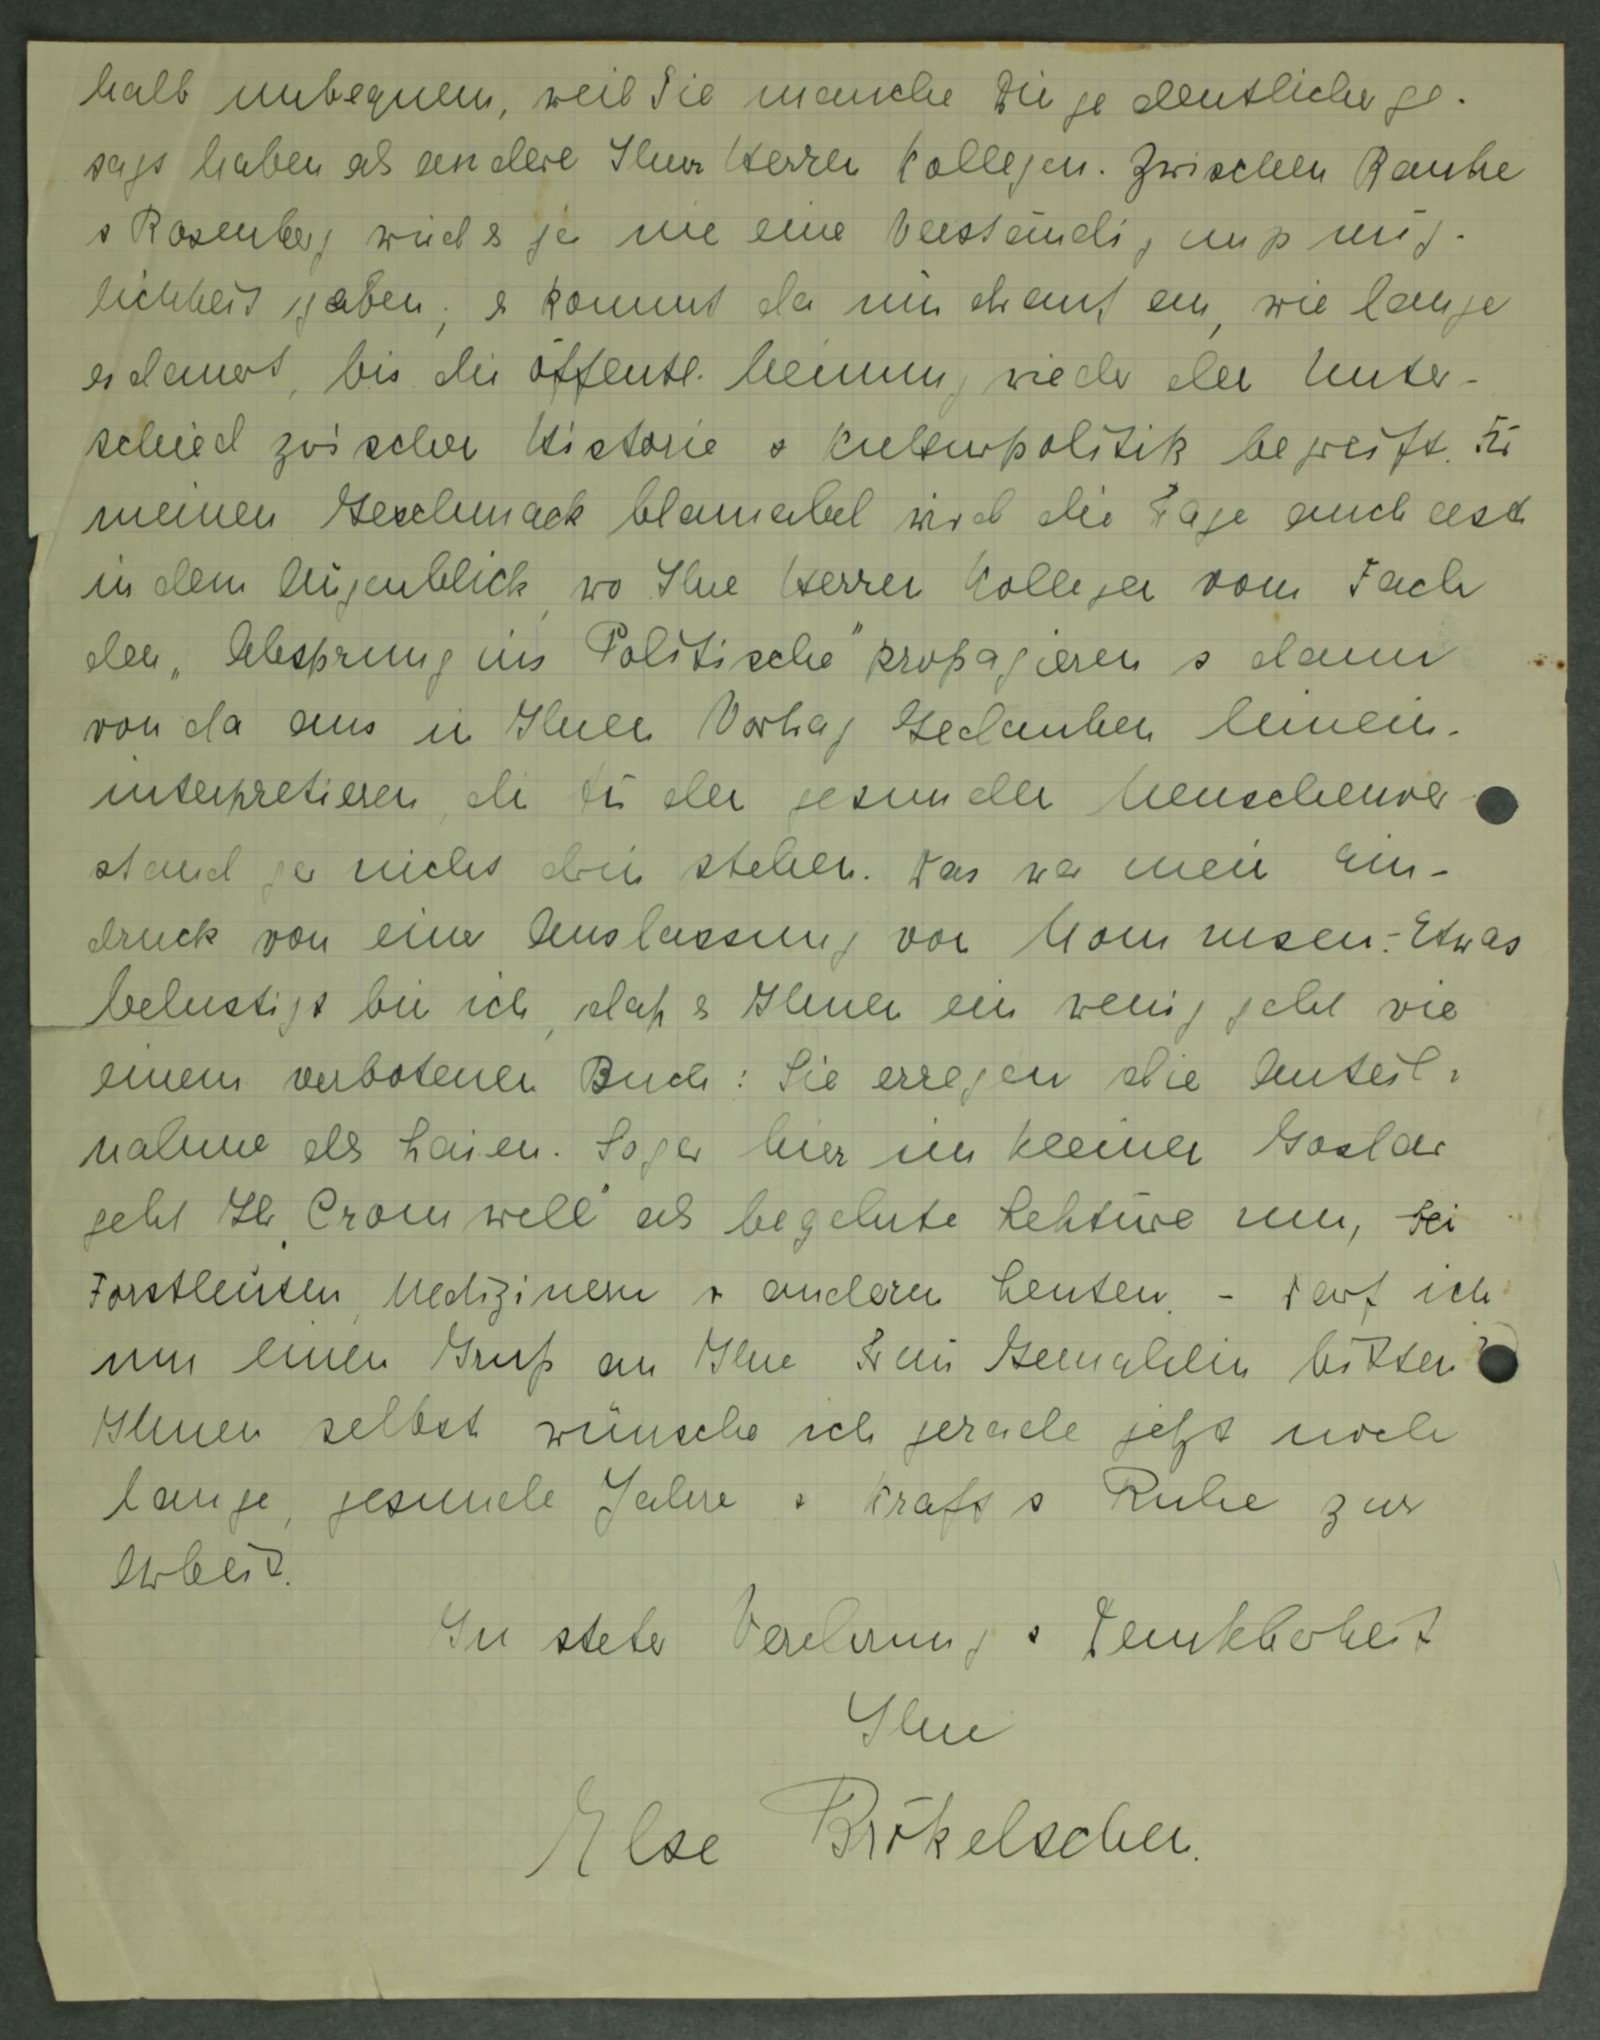 halb unbequem, weil Sie manche Dinge deutlicher ge-
sagt haben als andere Ihrer Herren Kollegen. Zwischen Ranke
& Rosenberg wird es ja nie eine Verständigungsmög-
lichkeit geben; es kommt da nur drauf an, wie lange
es dauert, bis die öffentl. Meinung wieder den Unter-
schied zwischen Historie & Kulturpolitik begreift. Für
meinen Geschmack blamabel wird die Lage auch erst
in dem Augenblick, wo Ihre Herren Kollegen vom Fach
den „Absprung ins Politische" propagieren & dann
von da aus in Ihren Vortrag Gedanken hinein-
interpretieren, die für den gesunden Menschenver-
stand gar nicht drin stehen. Das war mein Ein-
druck von einer Auslassung von Mommsen. - Etwas
belustigt bin ich, daß es Ihnen ein wenig geht wie
einem verbotenen Buch: Sie erregen die Anteil-
nahme der Laien. Sogar hier im kleinen Goslar
geht Ihr „Cromwell" als begehrte Lektüre um, bei
Forstleuten, Medizinern & andern Leuten. - Darf ich
um einen Gruß an Ihre Frau Gemahlin bitten?
Ihnen selbst wünsche ich gerade jetzt noch
lange, gesunde Jahre & Kraft & Ruhe zur
Arbeit.
In steter Verehrung & Dankbarkeit
Ihre
Else Brökelschen.